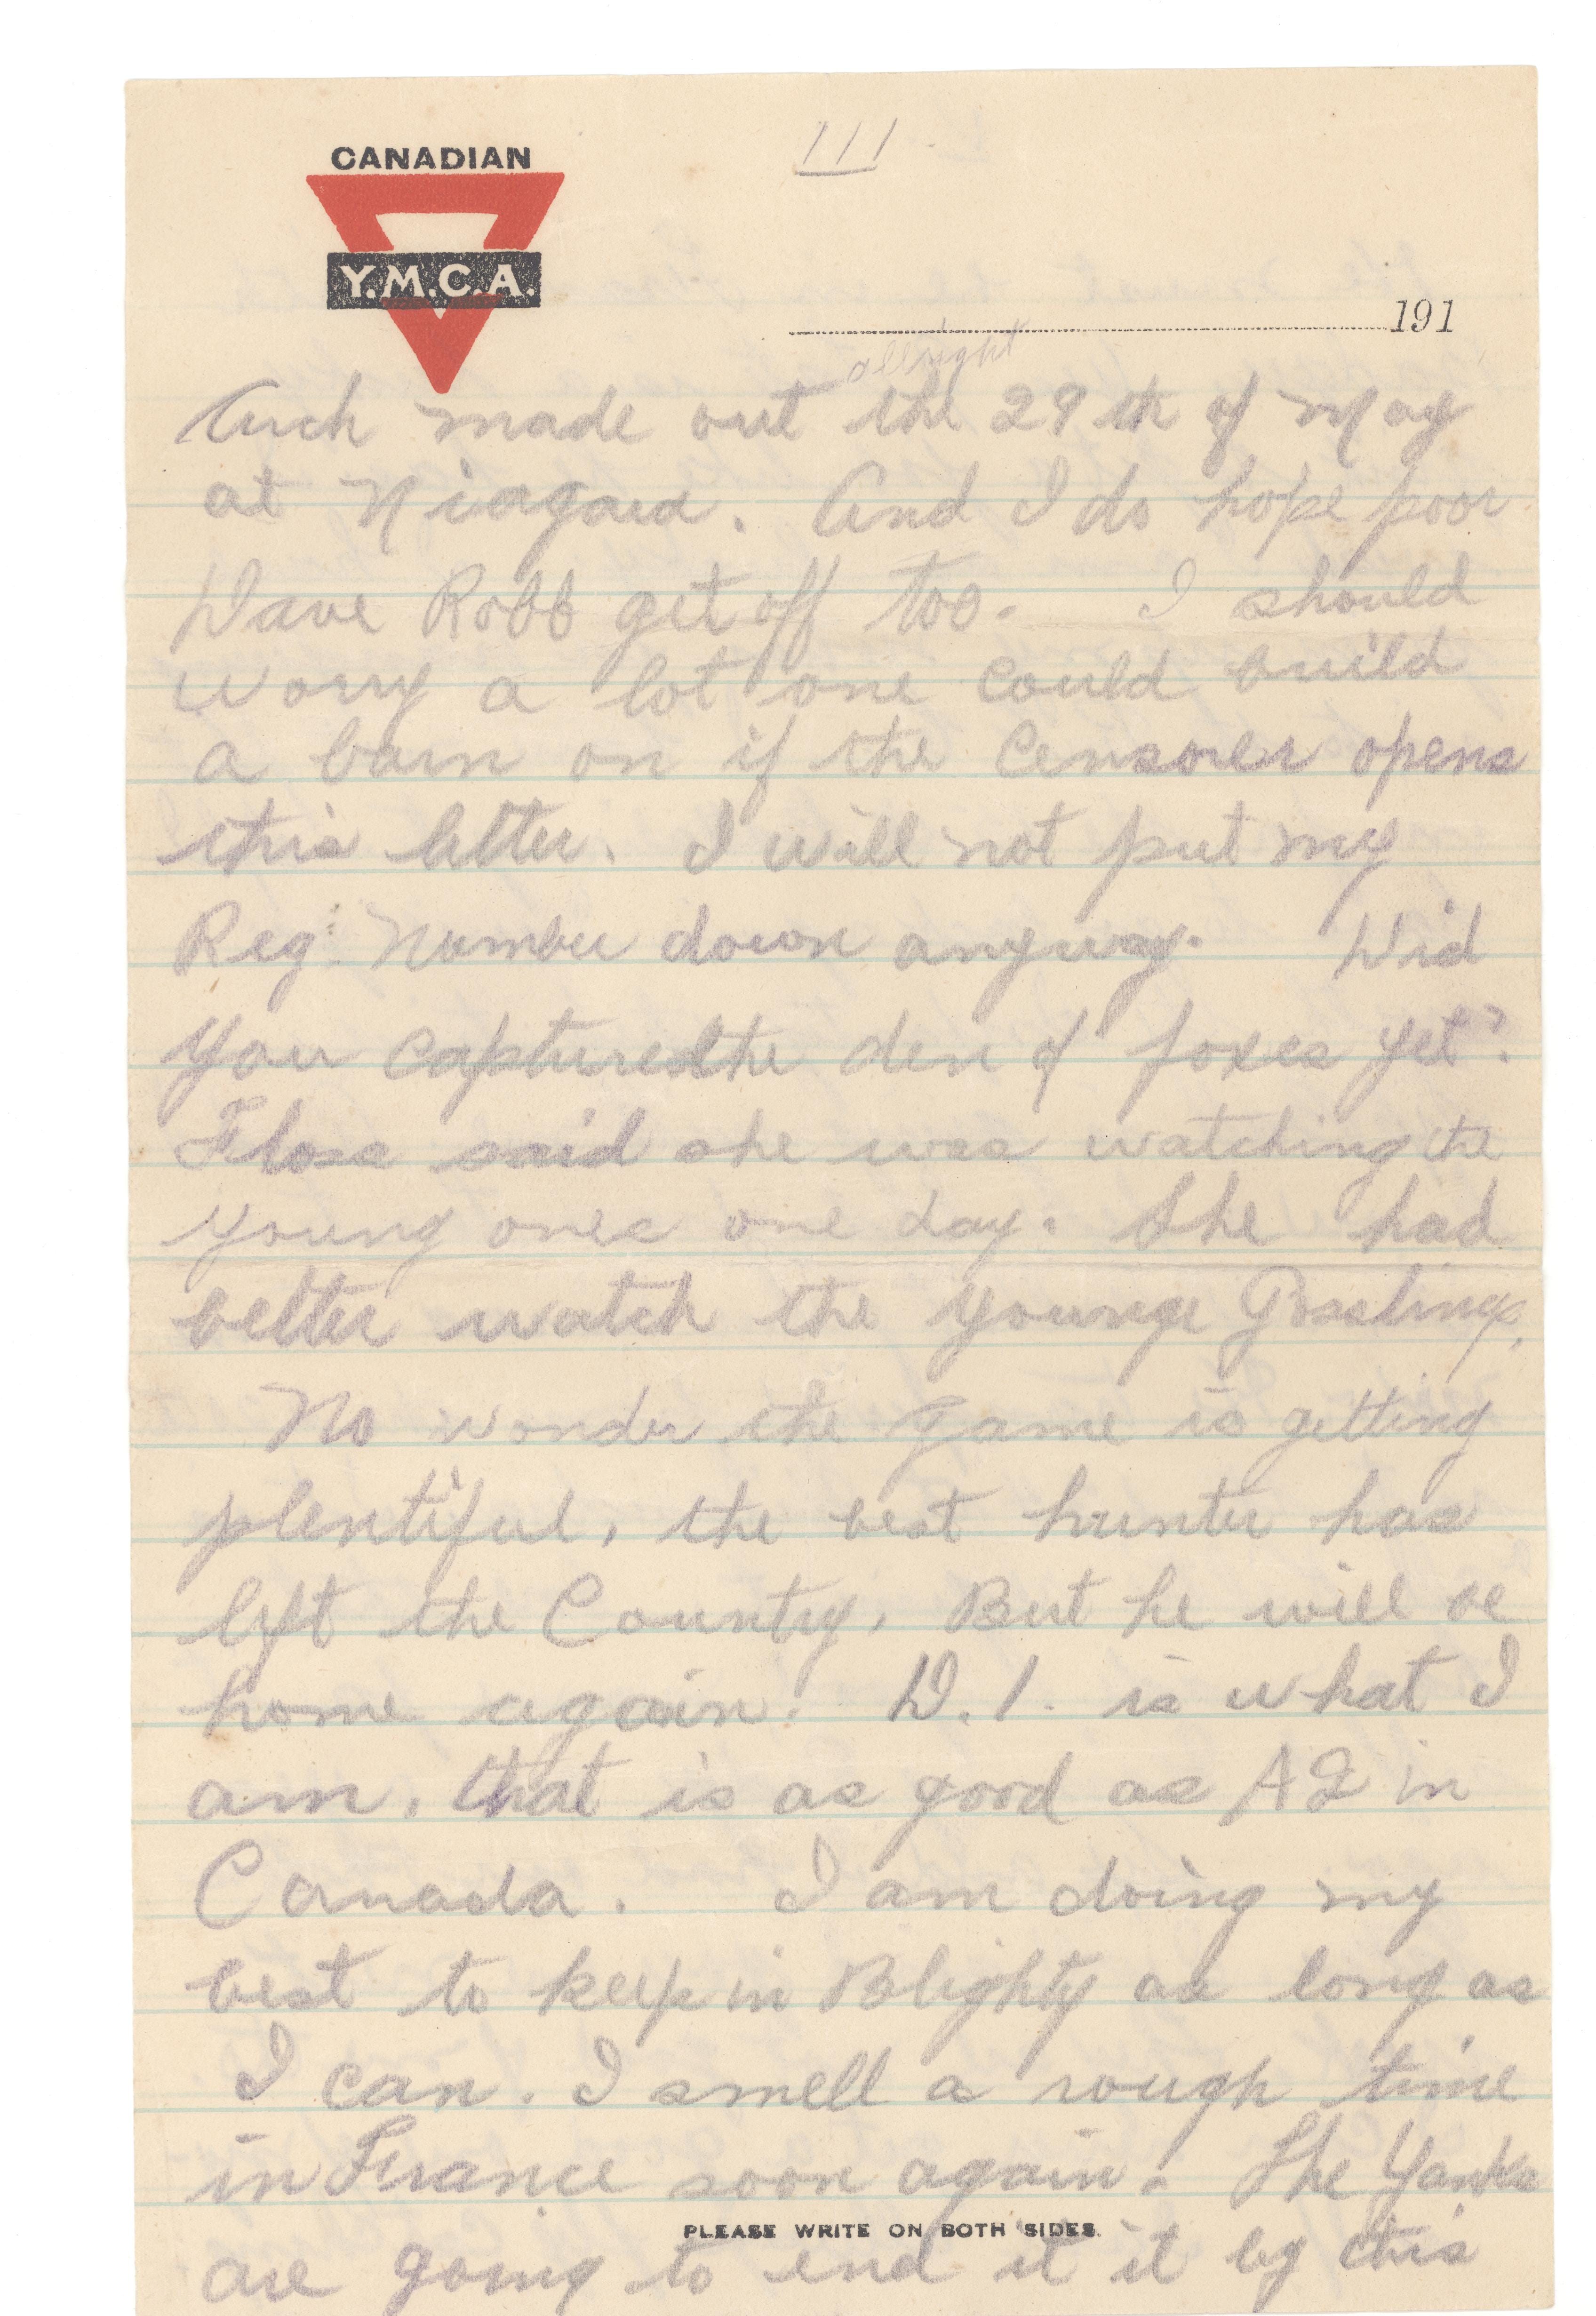 CANADIAN
Y.M.C.A.
111
191
allright
Arch made out the 29th of May
at Niagara. And I do hope poor
Dave Robb get off too. I should
worry a lot one could build
a barn on if the Censorer opens
this letter. I will not put my
Reg. Number down anyway. Did
you captured the den of foxes yet?
Floss said she was watching the
young ones one day. She had
better watch the younge Gosslings.
No wonder the game is getting
plentiful, the best hunter has
left the Country. But he will be
home again. D.1. is what I
am, that is as good as A2 in
Canada. I am doing my
best to keep in Blighty as long as
I can. I smell a rough time
in France soon again. The Yanks
PLEASE WRITE ON BOTH SIDES.
are going to end it it by this